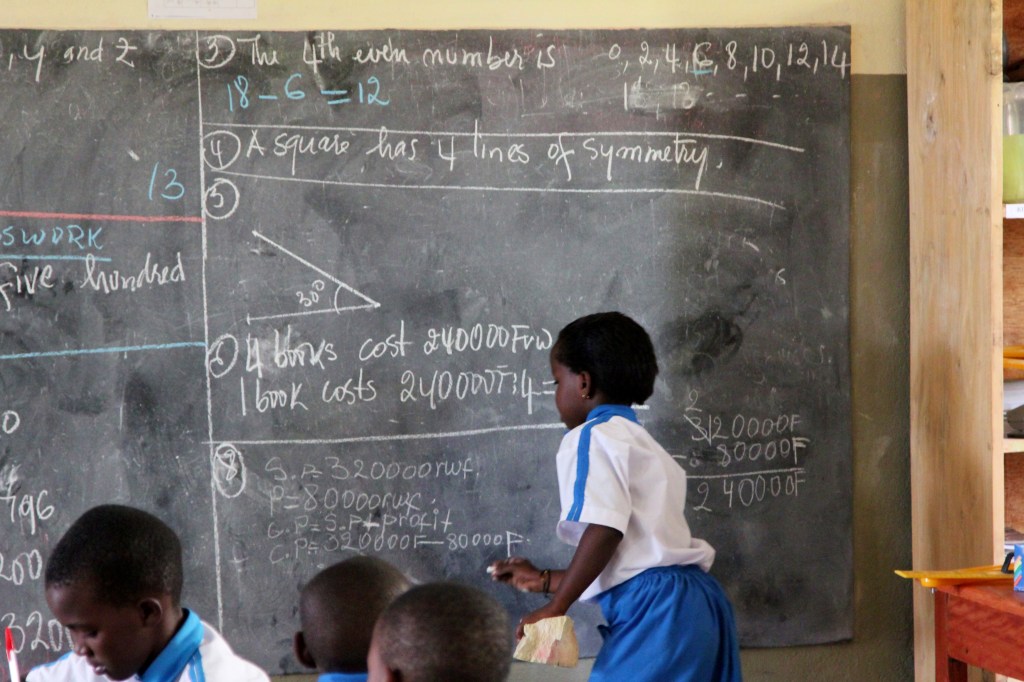 , y and z
13
SWORK
five hundred
0
796
200
320
③ The 4th even number is 0, 2, 4, 6, 8, 10, 12, 14
18 - 6 = 12
④ A square has 4 lines of symmetry.
⑤
30°
⑥ 4 books cost 240000Frw
1 book costs 240000F÷4=
⑧
S.P=320000rwf.
P=80000rwf.
C.P=S.P-profit
C.P=320000F-80000F.
2
320000F
- 80000F
240000F